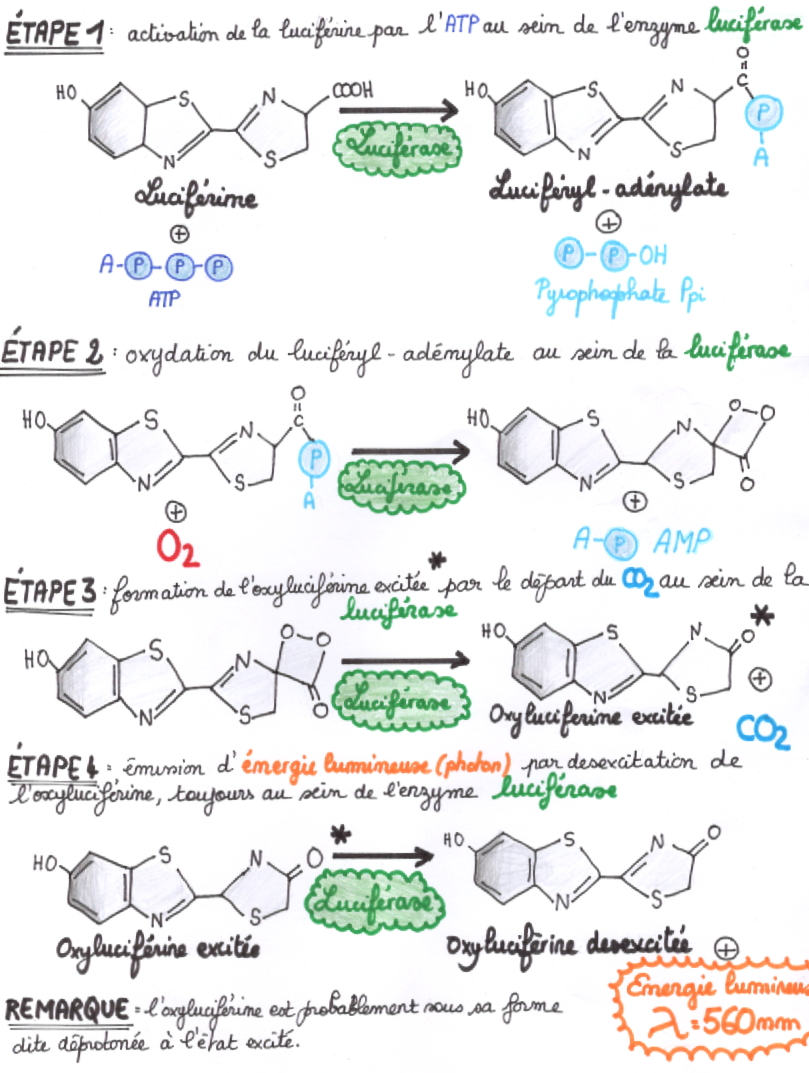 ÉTAPE 1 : activation de la luciférine par l'ATP au sein de l'enzyme luciférase
HO S N COOH
N S
Luciférase
HO S N C O P A
N S
Luciférine
Luciféryl-adénylate
+
+
A-P-P-P
P-P-OH
ATP
Pyrophosphate Ppi
ÉTAPE 2 : oxydation du luciféryl-adénylate au sein de la luciférase
HO S N C O P A
N S
Luciférase
HO S N O O
N S O
+
+
O2
A-P AMP
ÉTAPE 3 : formation de l'oxyluciférine excitée* par le départ du CO2 au sein de la
luciférase
HO S N O O
N S O
Luciférase
HO S N O *
N S
+
Oxyluciferine excitée
CO2
ÉTAPE 4 : émission d'énergie lumineuse (photon) par desexcitation de
l'oxyluciférine, toujours au sein de l'enzyme luciférase
HO S N O *
N S
Luciférase
HO S N O
N S
Oxyluciférine excitée
Oxyluciférine desexcitée +
Energie lumineus
λ = 560nm
REMARQUE = l'oxyluciférine est probablement sous sa forme
dite déprotonée à l'état excité.